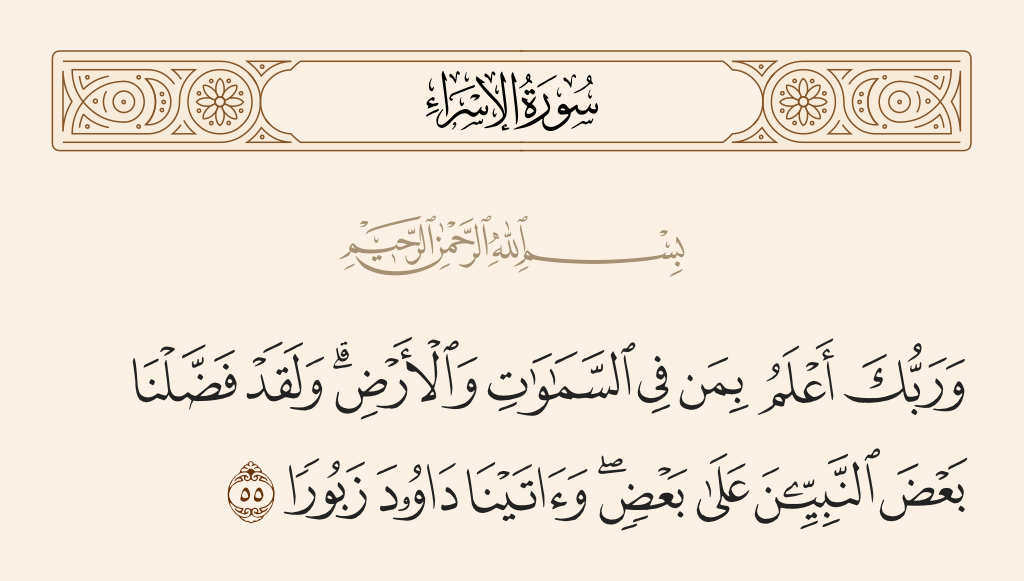 سُورَةُ الإِسْرَاءِ
بِسْمِ ٱللَّهِ ٱلرَّحْمَٰنِ ٱلرَّحِيمِ
وَرَبُّكَ أَعْلَمُ بِمَن فِى ٱلسَّمَٰوَٰتِ وَٱلْأَرْضِ ۗ وَلَقَدْ فَضَّلْنَا
بَعْضَ ٱلنَّبِيِّـۧنَ عَلَىٰ بَعْضٍ ۖ وَءَاتَيْنَا دَاوُۥدَ زَبُورًا ٥٥